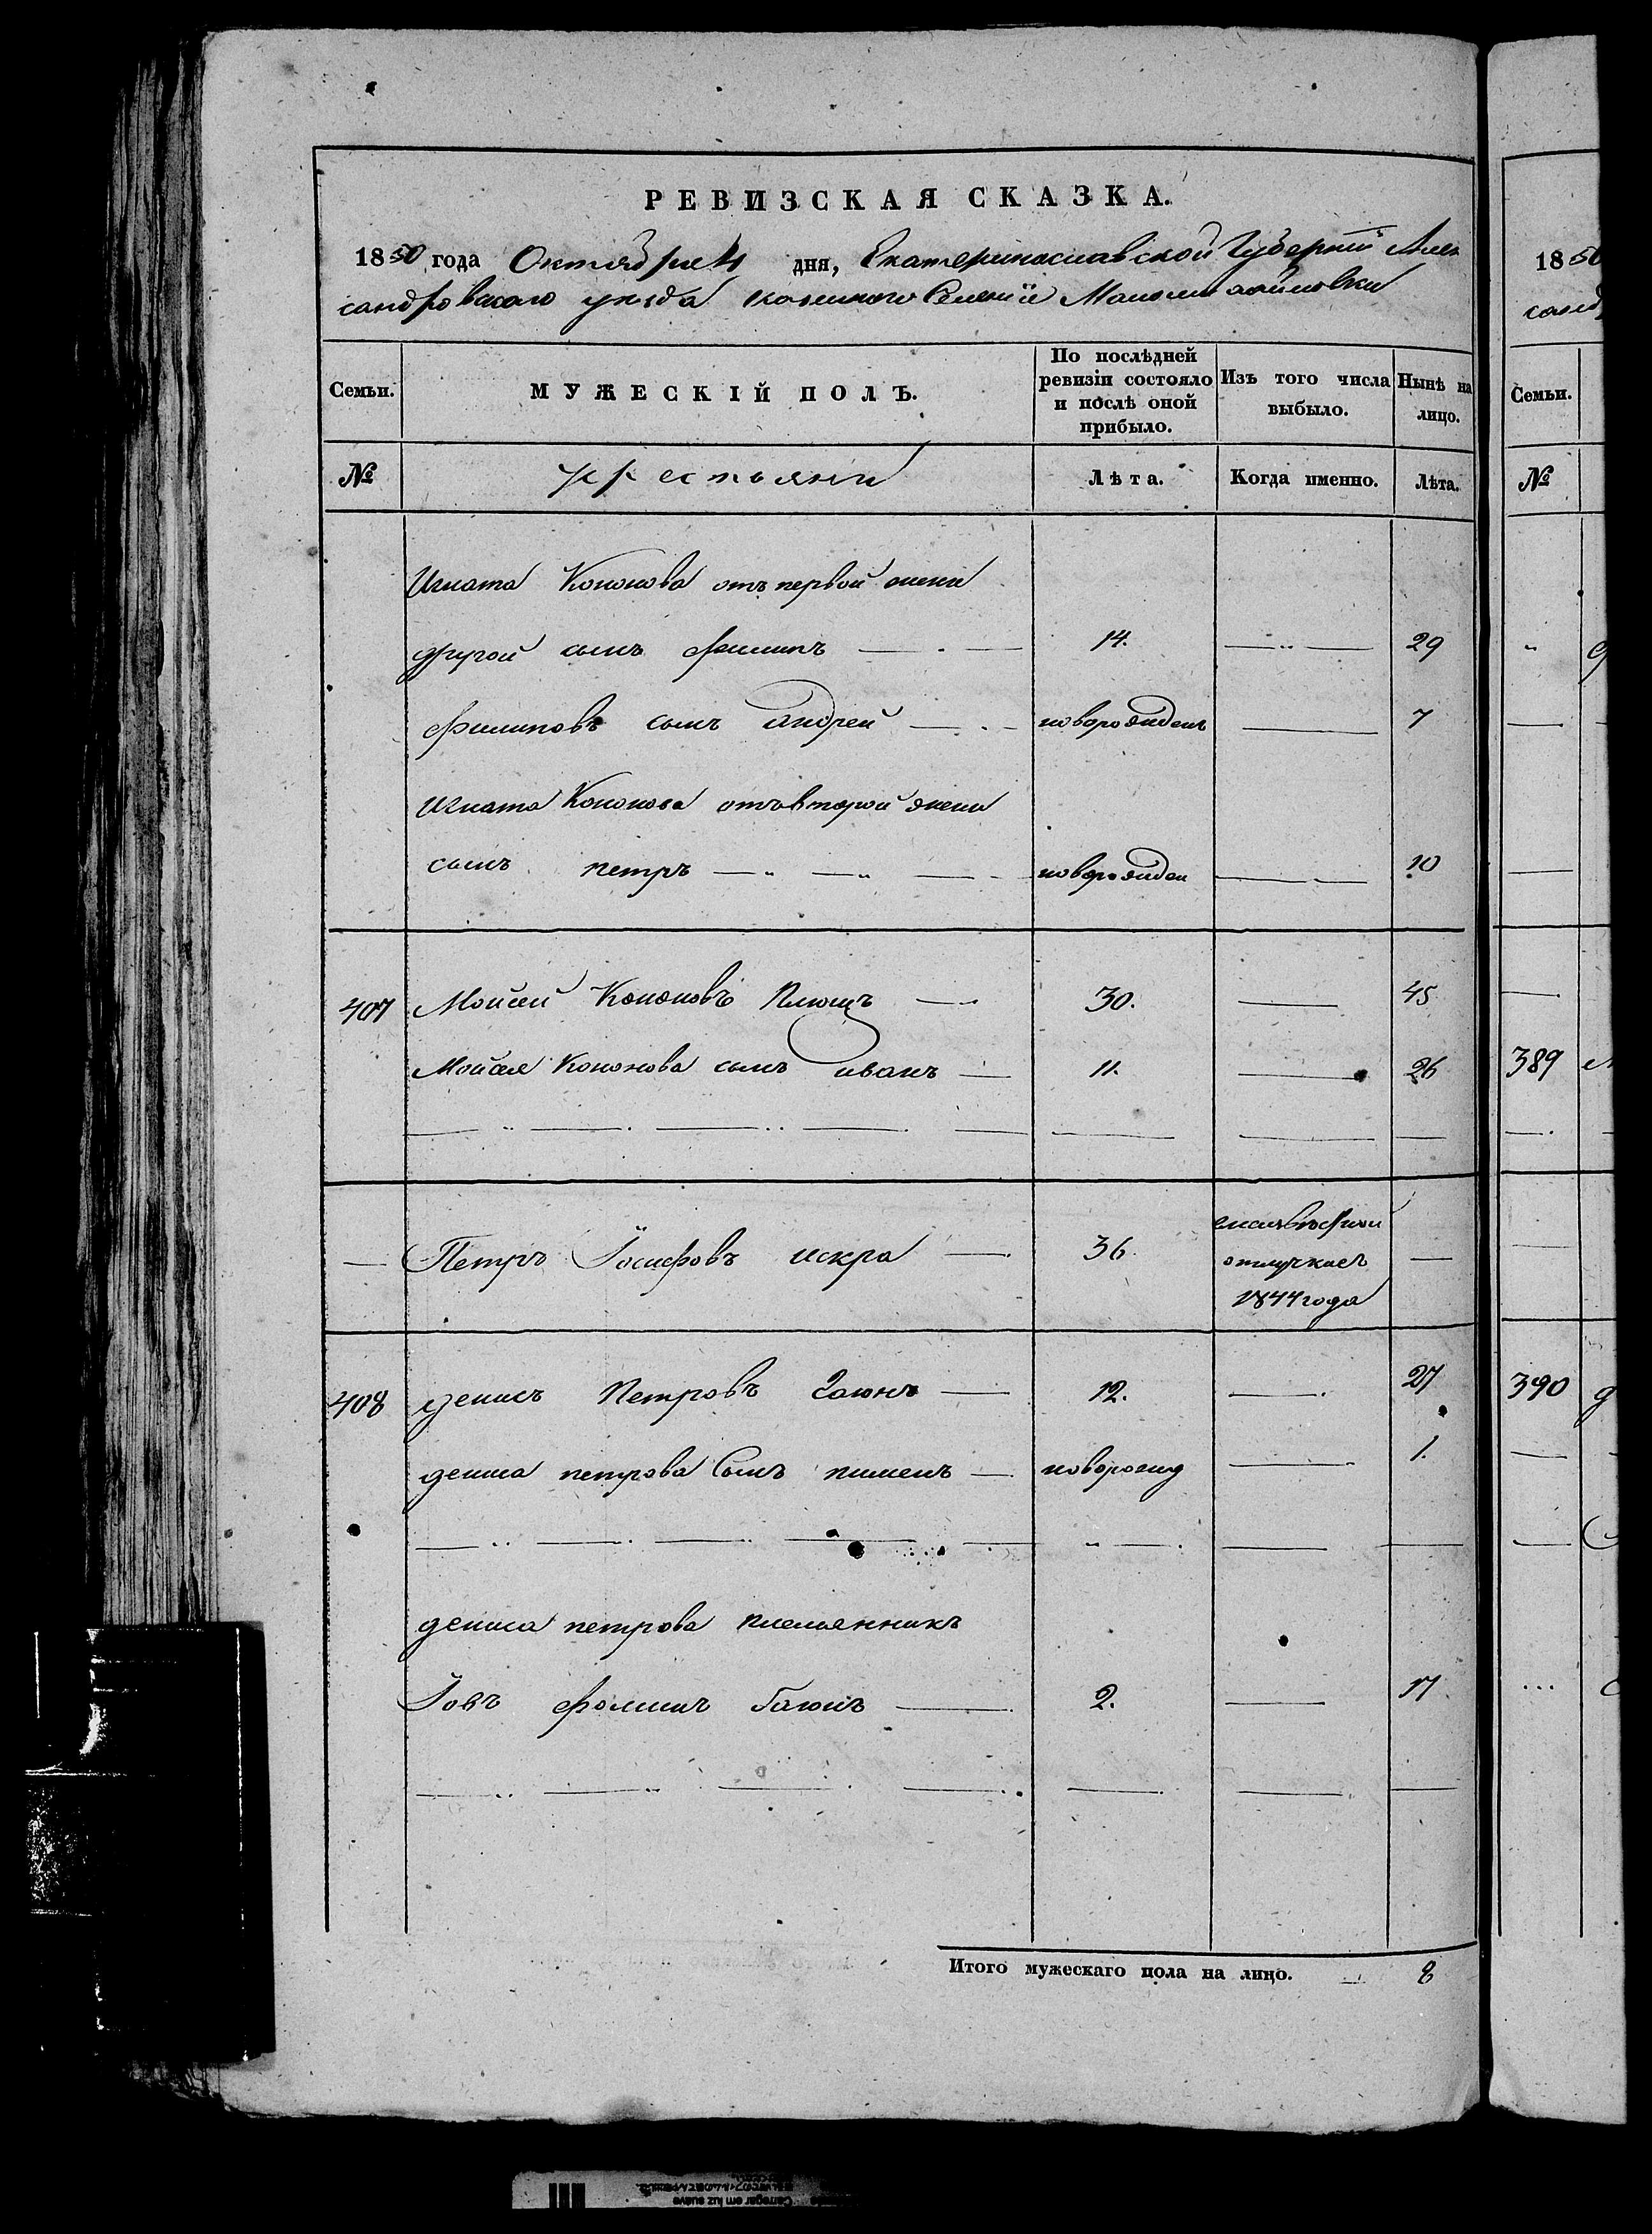 РЕВИЗСКАЯ СКАЗКА.
1850 года Октября 4 дня, Екатеринославской Губерніи Алек
сандровскаго уезда казеннаго Селенія
Семьи.
МУЖЕСКІЙ ПОЛЪ.
По послѣдней ревизіи состояло и послѣ оной прибыло.
Изъ того числа выбыло.
Нынѣ на лицо.
№ крестьяни Лѣта. Когда именно. Лѣта.
Игната Кононова отъ первой жени
другой сынъ Филипъ 14. 29
Филиповъ сынъ Андрей новорожденъ 7
Игната Кононова отъ второй жени
сынъ петръ новорожден 10
407 Мойсей Кононовъ Плющъ 30. 45
Мойсея Кононова сынъ иванъ 11. 26
Петръ Іосифовъ искра 36
отлучкъ
1844 года
408 денисъ Петровъ Гаюнъ 12. 27
дениса петрова Сынъ пименъ новорожд 1.
дениса петрова племянникъ
Іовъ Фоминъ Гаюнъ 2. 17
Итого мужескаго пола на лицо. 8
1850
Семьи.
№
389
390